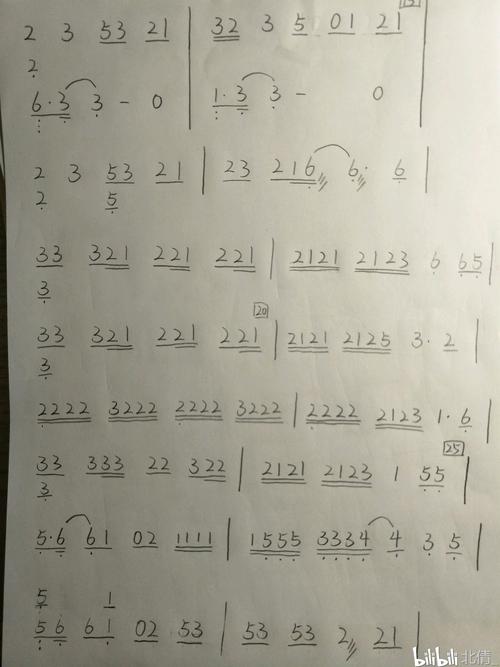 2 3 53 21 | 32 3 5 01 21 |
2
6·3 3 - 0 | 1·3 3 - 0 |
2 3 53 21 | 23 216 6· 6 |
2 5
33 321 221 221 | 2121 2123 6 65 |
3
20
33 321 221 221 | 2121 2125 3· 2 |
3
2222 3222 2222 3222 | 2222 2123 1·6 |
25
33 333 22 322 | 2121 2123 1 55 |
3
5·6 61 02 1111 | 1555 3334 4 3 5 |
5 1
56 61 02 53 | 53 53 2 21 |
bilibili 北倩